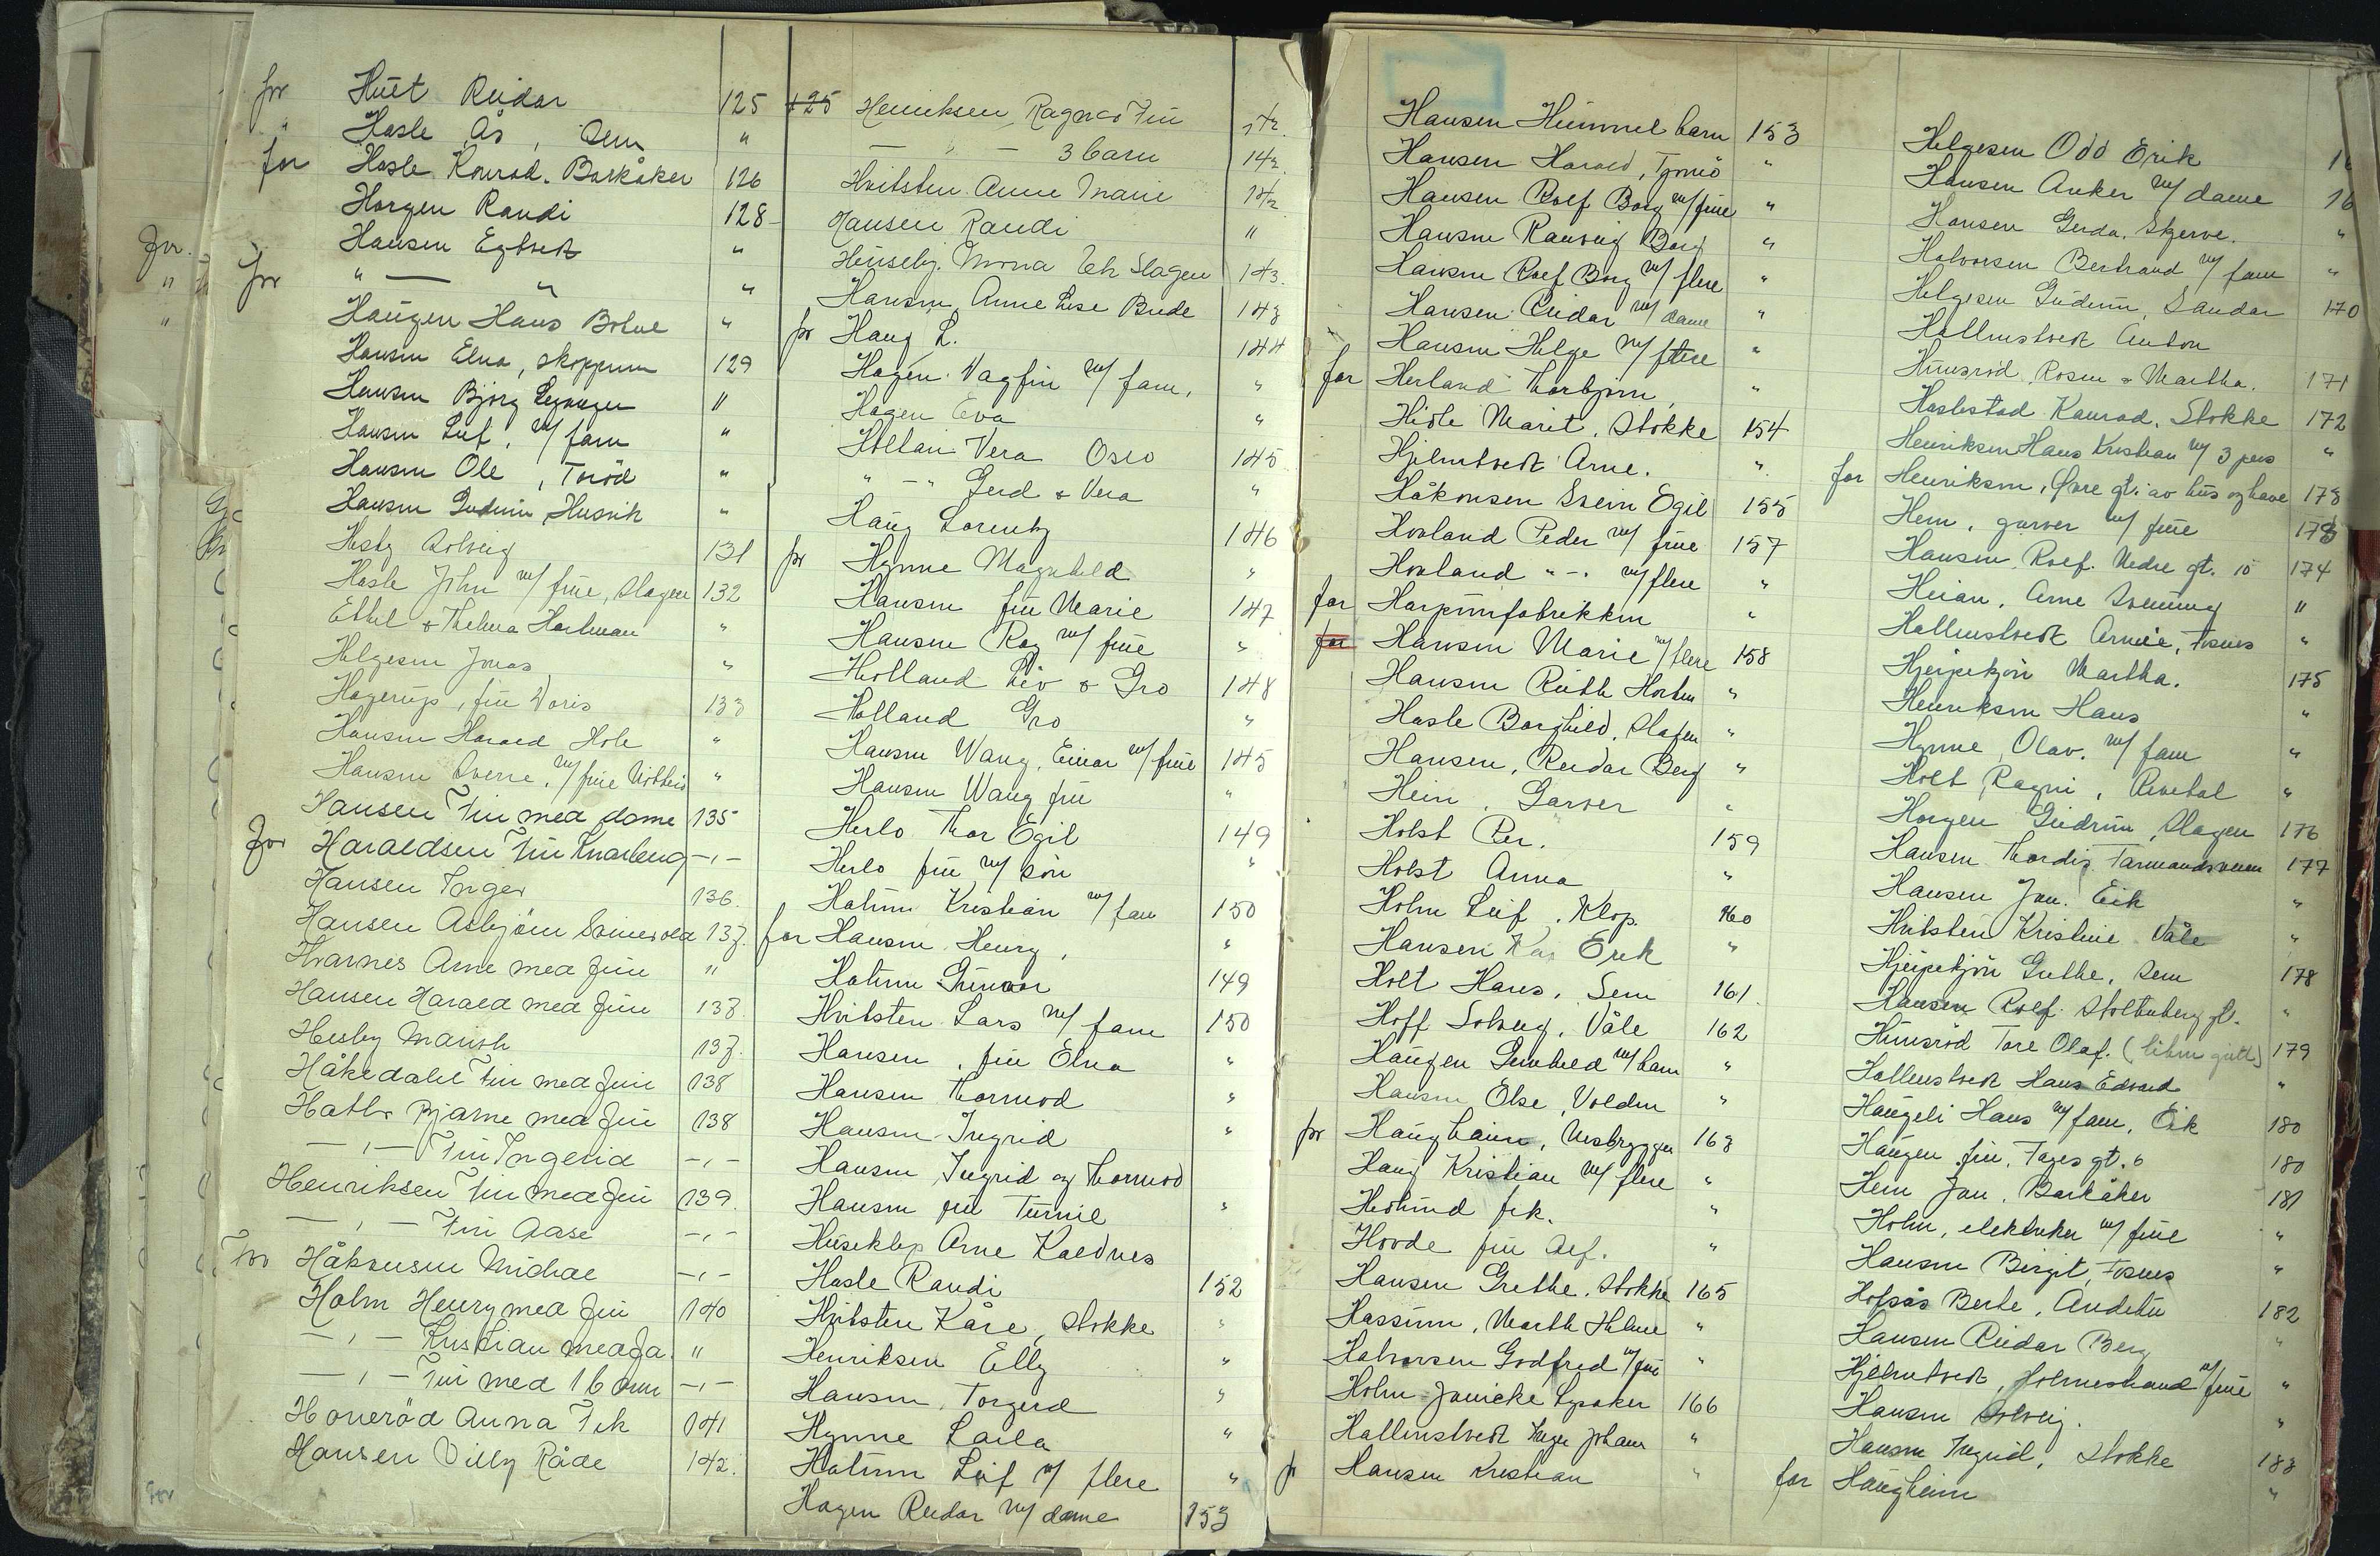 for Huet Reidar 125
" Hasle Ås, Sem "
for Hasle Konrad. Barkåker 126
Horgen Randi 128
Hansen Egbert "
for " — " "
Haugen Hans Bolue "
Hansen Elna, Skoppum 129
Hansen Bjørg "
Hansen Leif, m/ fam "
Hansen Ole, Torød "
Hansen Gudrun, Husvik "
Hesby Solveig 131
Hasle John m/ frue, Slagen 132
Ethel & Thelma Hartman "
Helgesen Jonas "
Hagerup, fru Doris 133
Hansen Harald Hole "
Hansen Sverre, m/ frue "
Hansen Fru med dame 135
for Haraldsen Fru Knarberg -,-
Hansen Torger 136.
Hansen Asbjørn 137.
Hvarnes Arne med frue "
Hansen Harald med frue 138.
Hesby 137.
Håkedalel Fru med frue 138
Hatlø Bjarne med fru 138
— , — Fru Ingerid -,-
Henriksen Fru med fru 139.
— , — Fru Aase -,-
For Håkonsen -,-
Holm Henry med fru 140
— , — Kristian med fa. "
— , — Fru med 1 barn -,-
Honerød Anna Frk 141
Hansen Willy Råde 142.
125 Henriksen, Ragna Fru 142.
— " — 3 barn 142.
Hvitsten Anne Marie 142
Hansen Randi "
Huseby. Mona Eek Slagen 143.
Hansen, Anne Lise Bude 143
for Haug L. 144
Hagen Dagfin m/ fam, "
Hagen Eva "
Hollan Vera Oslo 145
" - " Gerd & Vera "
Haug Lorentz 146
for Hynne Magnhild "
Hansen fru Marie 147
Hansen Roy m/ frue "
Holland Liv & Gro 148
Holland Gro "
Hansen Wang, Einar m/ frue 145
Hansen Wang fru "
Herlo Thor Egil 149
Herlo fru m/ søn "
Hatun Kristian m/ fam 150
for Hansen Henry, "
Hatun Gunvor 149
Hvitsten Lars m/ fam 150
Hansen, fru Elna "
Hansen Thormod "
Hansen Ingrid "
Hansen, Ingrid og Thormod
Hansen fru Turnil "
Huseklep Arne Kaldnes
Hasle Randi 152
Hvitsten Kåre, Stokke "
Henriksen Elly "
Hansen, Torgerd "
Hynne Laila "
Hatun Leif m/ flere "
Hagen Reidar m/ dame 153
Hansen Hummel barn 153
Hansen Harald, Tjømø "
Hansen Rolf Borg m/ frue "
Hansen Ranveig Borg "
Hansen Rolf Borg m/ flere "
Hansen Reidar m/ dame "
Hansen Helge m/ flere "
for Herland Thorbjørn, "
Hidle Marit, Stokke 154
Hjelmtvedt Arne. "
Håkonsen Svein Egil 155
Hovland Peder m/ frue 157
Hovland " - " m/ flere "
for Harpunfabrikken "
for Hansen Marie m/ flere 158
Hansen Ruth Horten "
Hasle Borghild, Slagen "
Hansen, Reidar Berg "
Hein, Garver "
Holst Per. 159
Holst Anna "
Holm Leif, Klop. 160
Hansen Kaj Erik "
Holt Hans, Sem 161.
Hoff Solveig, Våle 162
Haugen Gunhild m/ barn "
Hansen Else, Volden "
for Haugheim, Nesbryggen 163
Haug Kristian m/ flere "
Hedlund frk. "
Hovde fru Alf. "
Hansen Grethe, Stokke 165
Hassum, Marth Helene "
Halvorsen Godfred m/ fru "
Holm Janicke Lysaker 166
Hallenstvedt Inger Johan "
for Hansen Kristian "
Helgesen Odd Erik 16
Hansen Anker m/ dame 16
Hansen Gerda, Skjerve. "
Halvorsen Bertrand m/ fam "
Helgesen Gudrun, Sandar 170
Hallenstvedt Anton
Hunsrød, Rosen & Martha. 171
Haslestad Konrad, Stokke 172
Henriksen Hans Kristian m/ 3 pers "
for Henriksen, Øvre gt. av hus og have 173
Hem, garver m/ frue 173
Hansen, Rolf. Nedre gt. 10 174
Heian, Arne Svenning "
Hallenstvedt Arnie, Fosnes "
Hjeipekjøn Martha. 175
Henriksen Hans "
Hynne, Olav, m/ fam "
Holt Ragni, Revetal "
Horgen Gudrun, Slagen 176
Hansen Thordis 177
Hansen Jan. Eik "
Hvitsten Kristine Våle "
Hjeipekjøn Grethe, Sem 178
Hansen Rolf. Stoltenberg gt. "
Hunsrød Tore Olaf. (liten gutt) 179
Hallenstvedt Hans Edvard "
Haugeli Hans m/ fam, Eik 180
Haugen fru, Fayes gt. 6 180
Hem Jan, Barkåker 181
Holm, elektriker m/ frue "
Hansen Birgit, Fosnes "
Hofsøs Berte, Andebu 182
Hansen Reidar Berg "
Hjelmtvedt, Holmestrand m/ frue "
Hansen Solveig. "
Hansen Ingrid, Stokke 183
for Haugheim "